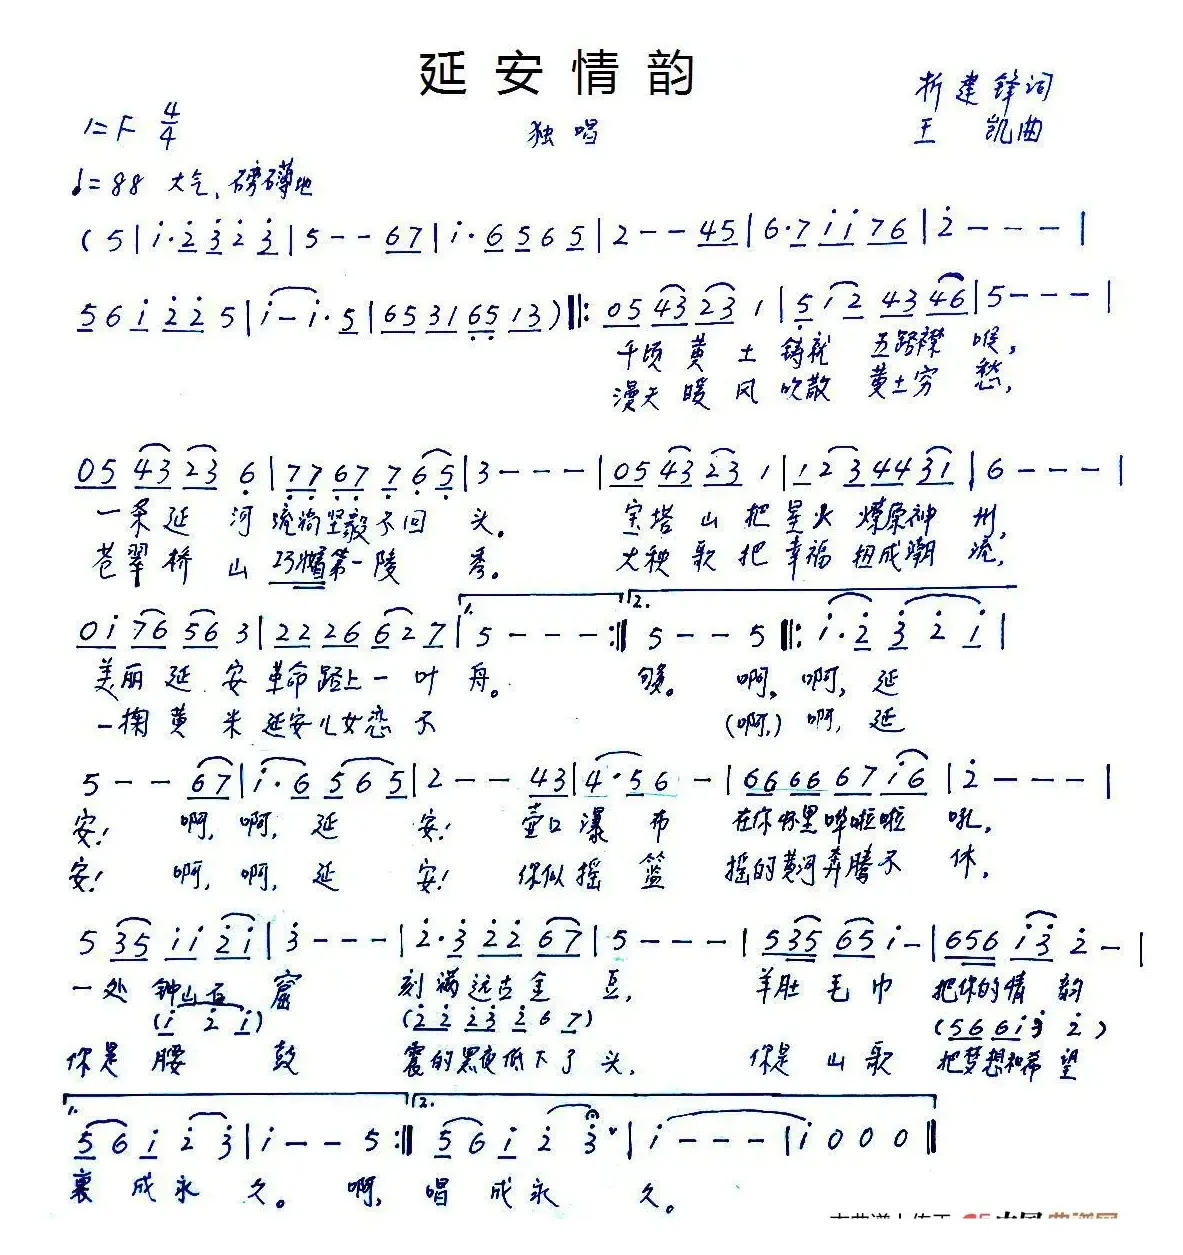 延安情韵
1=F 4/4
独唱
折建锋词
王 凯曲
♩=88 大气、磅礴地
(5|i·2̇ 3̇ 2̇ 3̇|5--67|i·6 5 6 5|2--45|6·7 i i 76|2̇---|
5 6 i 2̇ 2̇ 5|i-i·5|65 31 65 13)‖: 05 43 23 1|5 i 2 43 46|5---|
千顷黄土铸就五路襟喉,
漫天暖风吹散黄土穷愁,
05 43 23 6|77 67 7 65|3---|05 43 23 1|1 2 3 44 31|6---|
一条延河流淌坚毅不回头。 宝塔山把星火燎原神州,
苍翠桥山巧媚第一陵秀。 大秧歌把幸福扭成潮流,
1. 2.
0i 76 56 3|22 26 62 7|5---:‖5--5‖:i·2̇ 3̇ 2̇ i|
美丽延安革命路上一叶舟。 够。 啊,啊,延
一掬黄米延安儿女恋不 (啊,)啊,延
5--67|i·6 565|2--43|4·5 6-|66 66 67 i6|2̇---|
安! 啊,啊,延 安! 壶口瀑布 在你怀里哗啦啦吼,
安! 啊,啊,延 安! 你似摇篮 摇的黄河奔腾不休,
5 35 i i 2̇ i|3̇---|2̇·3̇ 2̇ 2̇ 67|5---|535 65 i-|656 i 3̇ 2̇-|
一处钟山石窟 刻满远古金豆, 羊肚毛巾 把你的情韵
(i 2̇ i) (2̇ 2̇ 2̇ 3̇ 2̇ 6 7) (56 6 i 3̇ 2̇)
你是腰鼓 震的黑夜低下了头, 你是山歌 把梦想和希望
1. 2.
5 6 i 2̇ 3̇|i--5:‖5 6 i 2̇ 3̇|i---|i 0 0 0‖
裹成永久。 啊, 唱成永久。